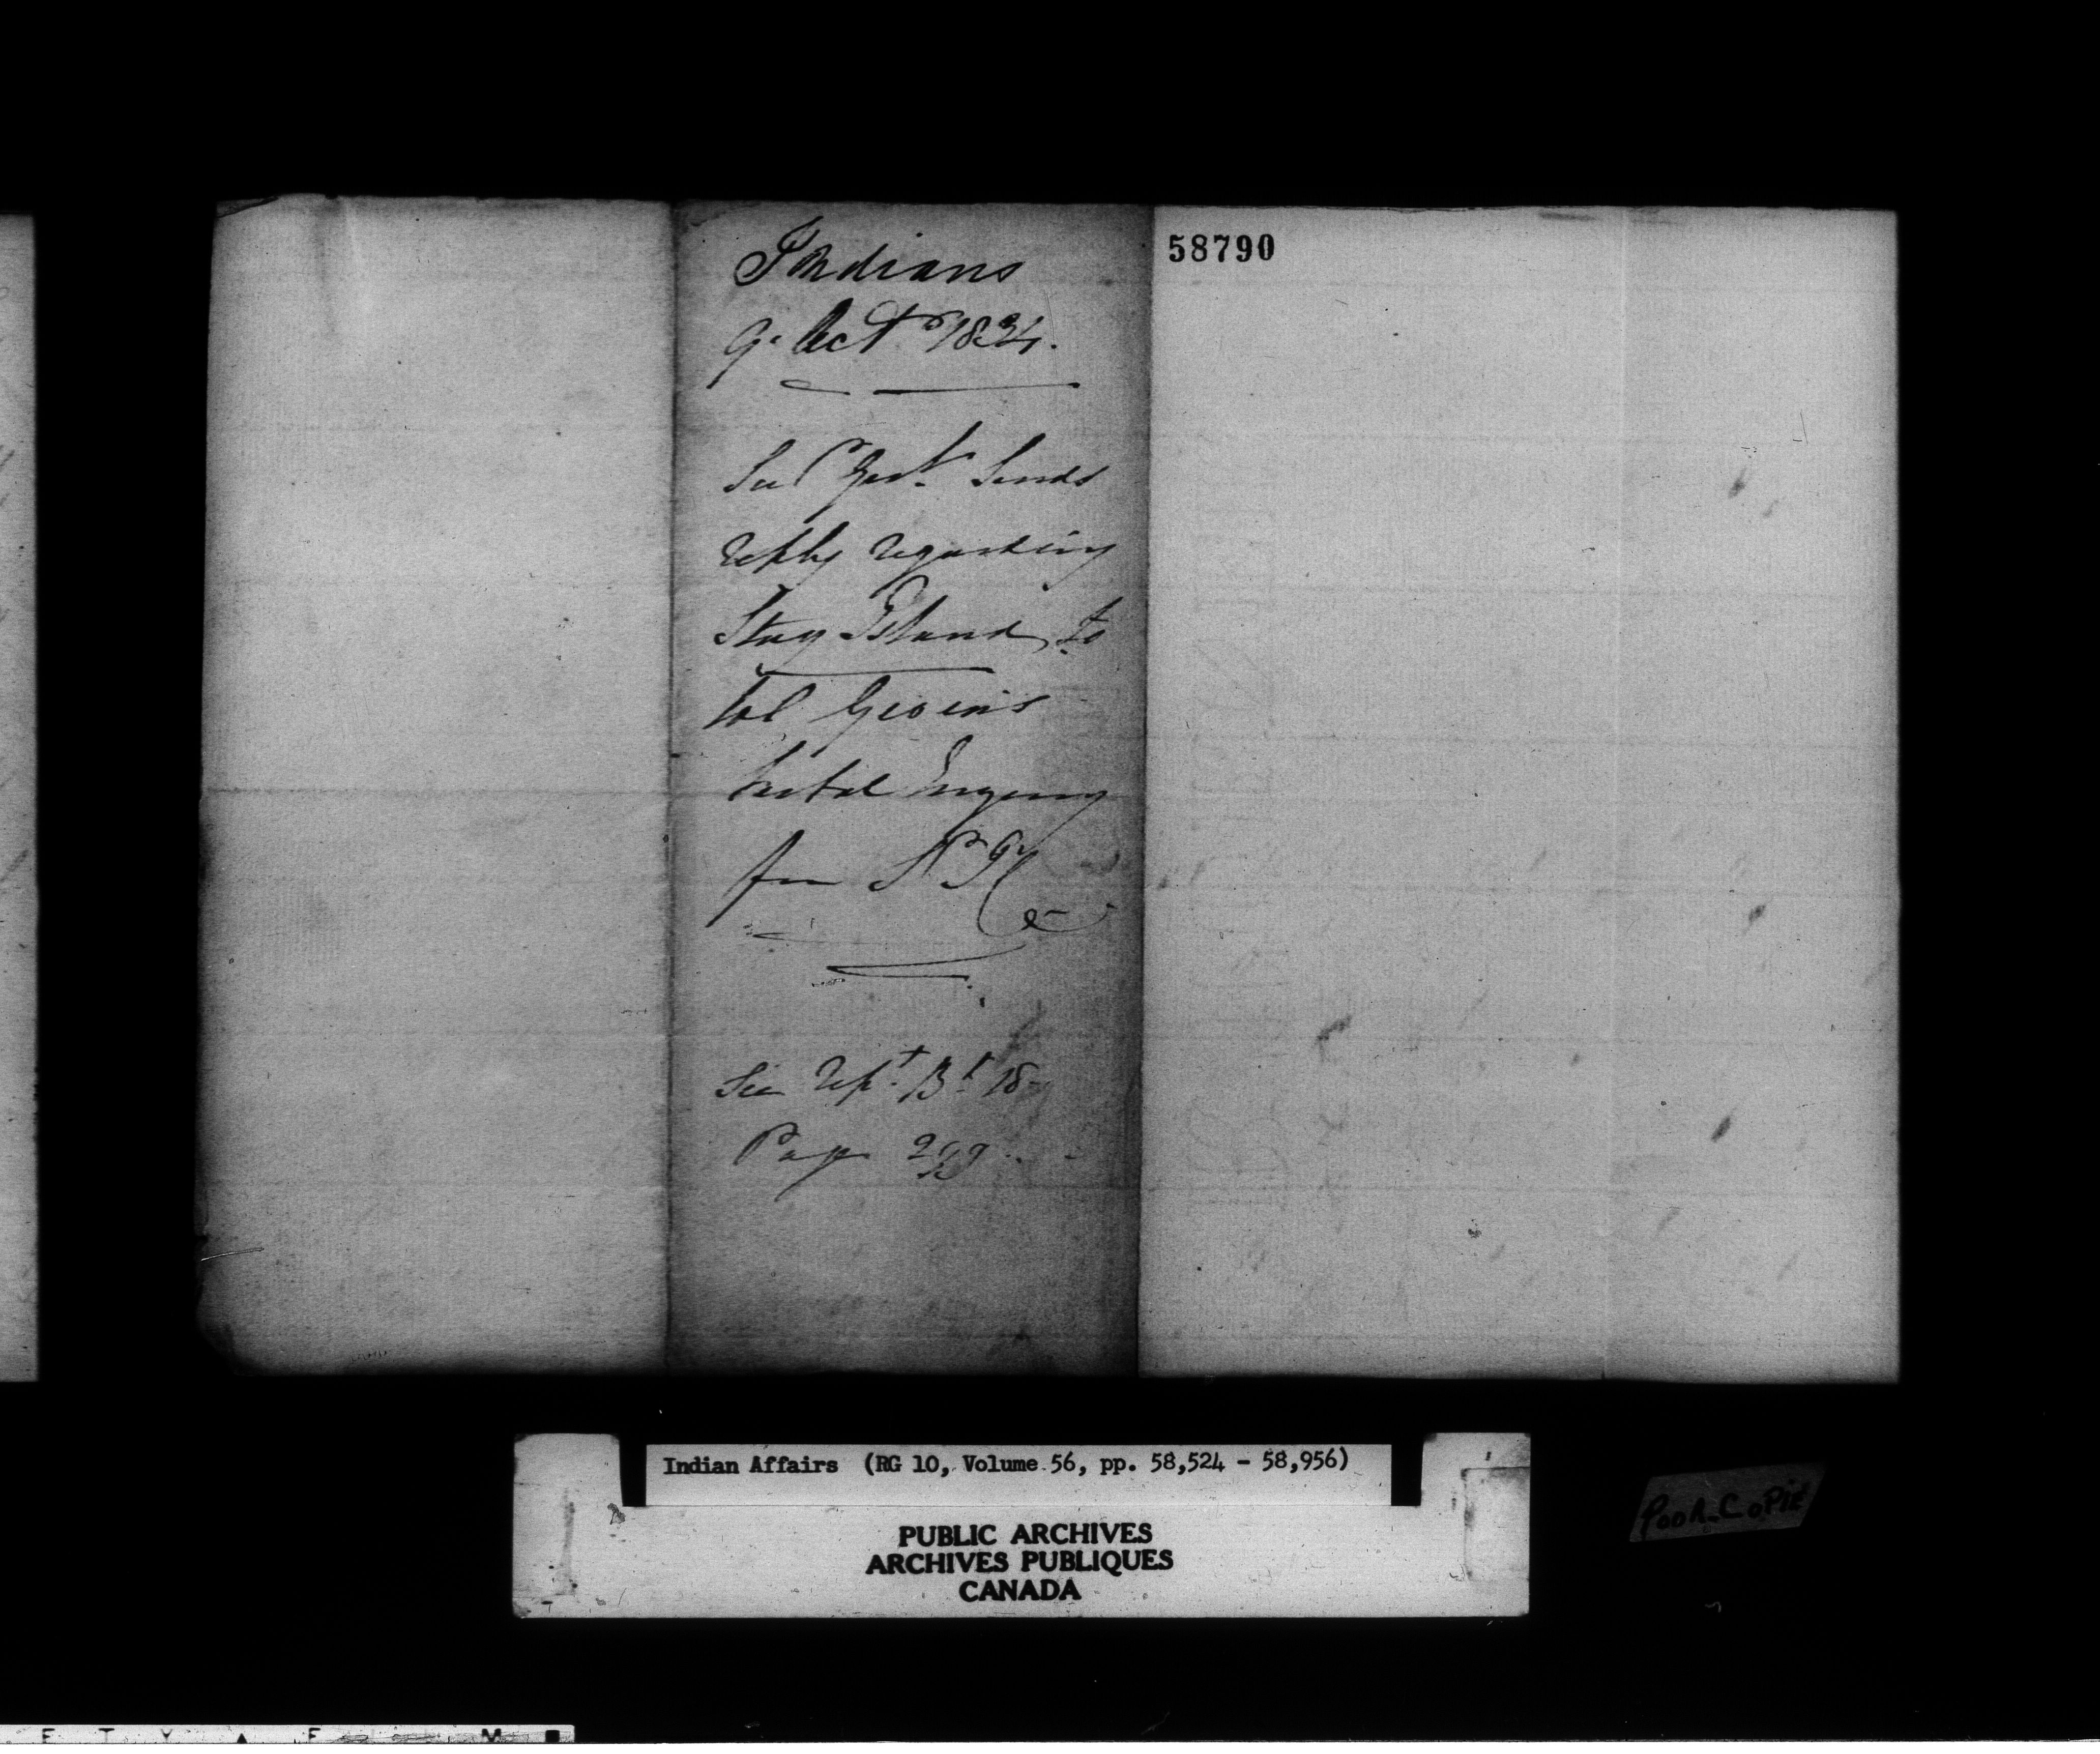 Indians
9. Oct. 1834.
Surv Genl. Sends
reply regarding
Stag Island to
Col Givins
from
See Rept. Bk. 18
Page
58790
Indian Affairs (RG 10, Volume 56, pp. 58,524 - 58,956)
PUBLIC ARCHIVES
ARCHIVES PUBLIQUES
CANADA
POOR COPIE